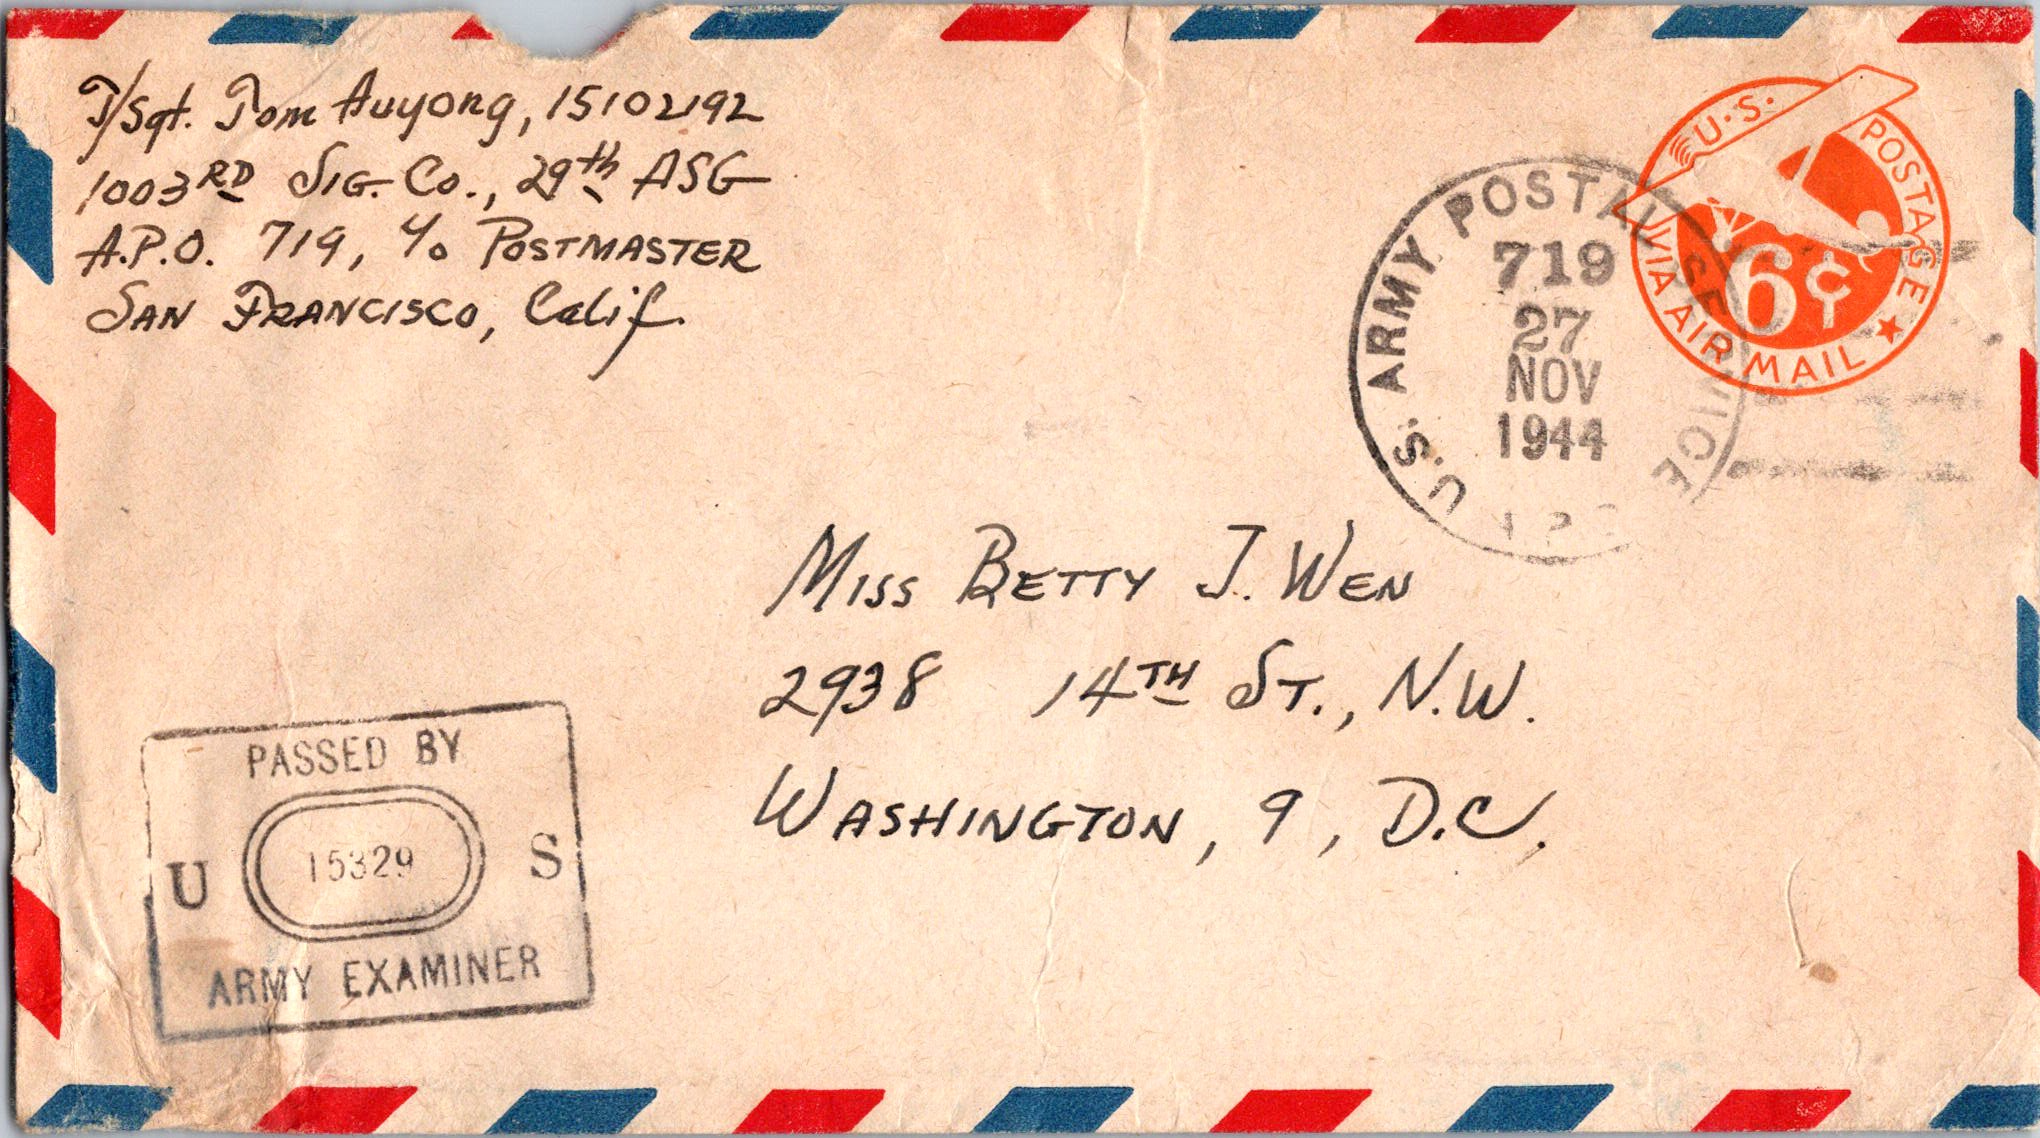 T/Sgt. Tom Auyong, 15102192
1003RD SIG. CO., 29th ASG
A.P.O. 719, c/o POSTMASTER
SAN FRANCISCO, Calif.
U.S. POSTAGE
VIA AIR MAIL
6¢
U.S. ARMY POSTAL SERVICE
719
27
NOV
1944
MISS BETTY J. WEN
2938 14TH ST., N.W.
WASHINGTON, 9, D.C.
PASSED BY
U 15329 S
ARMY EXAMINER